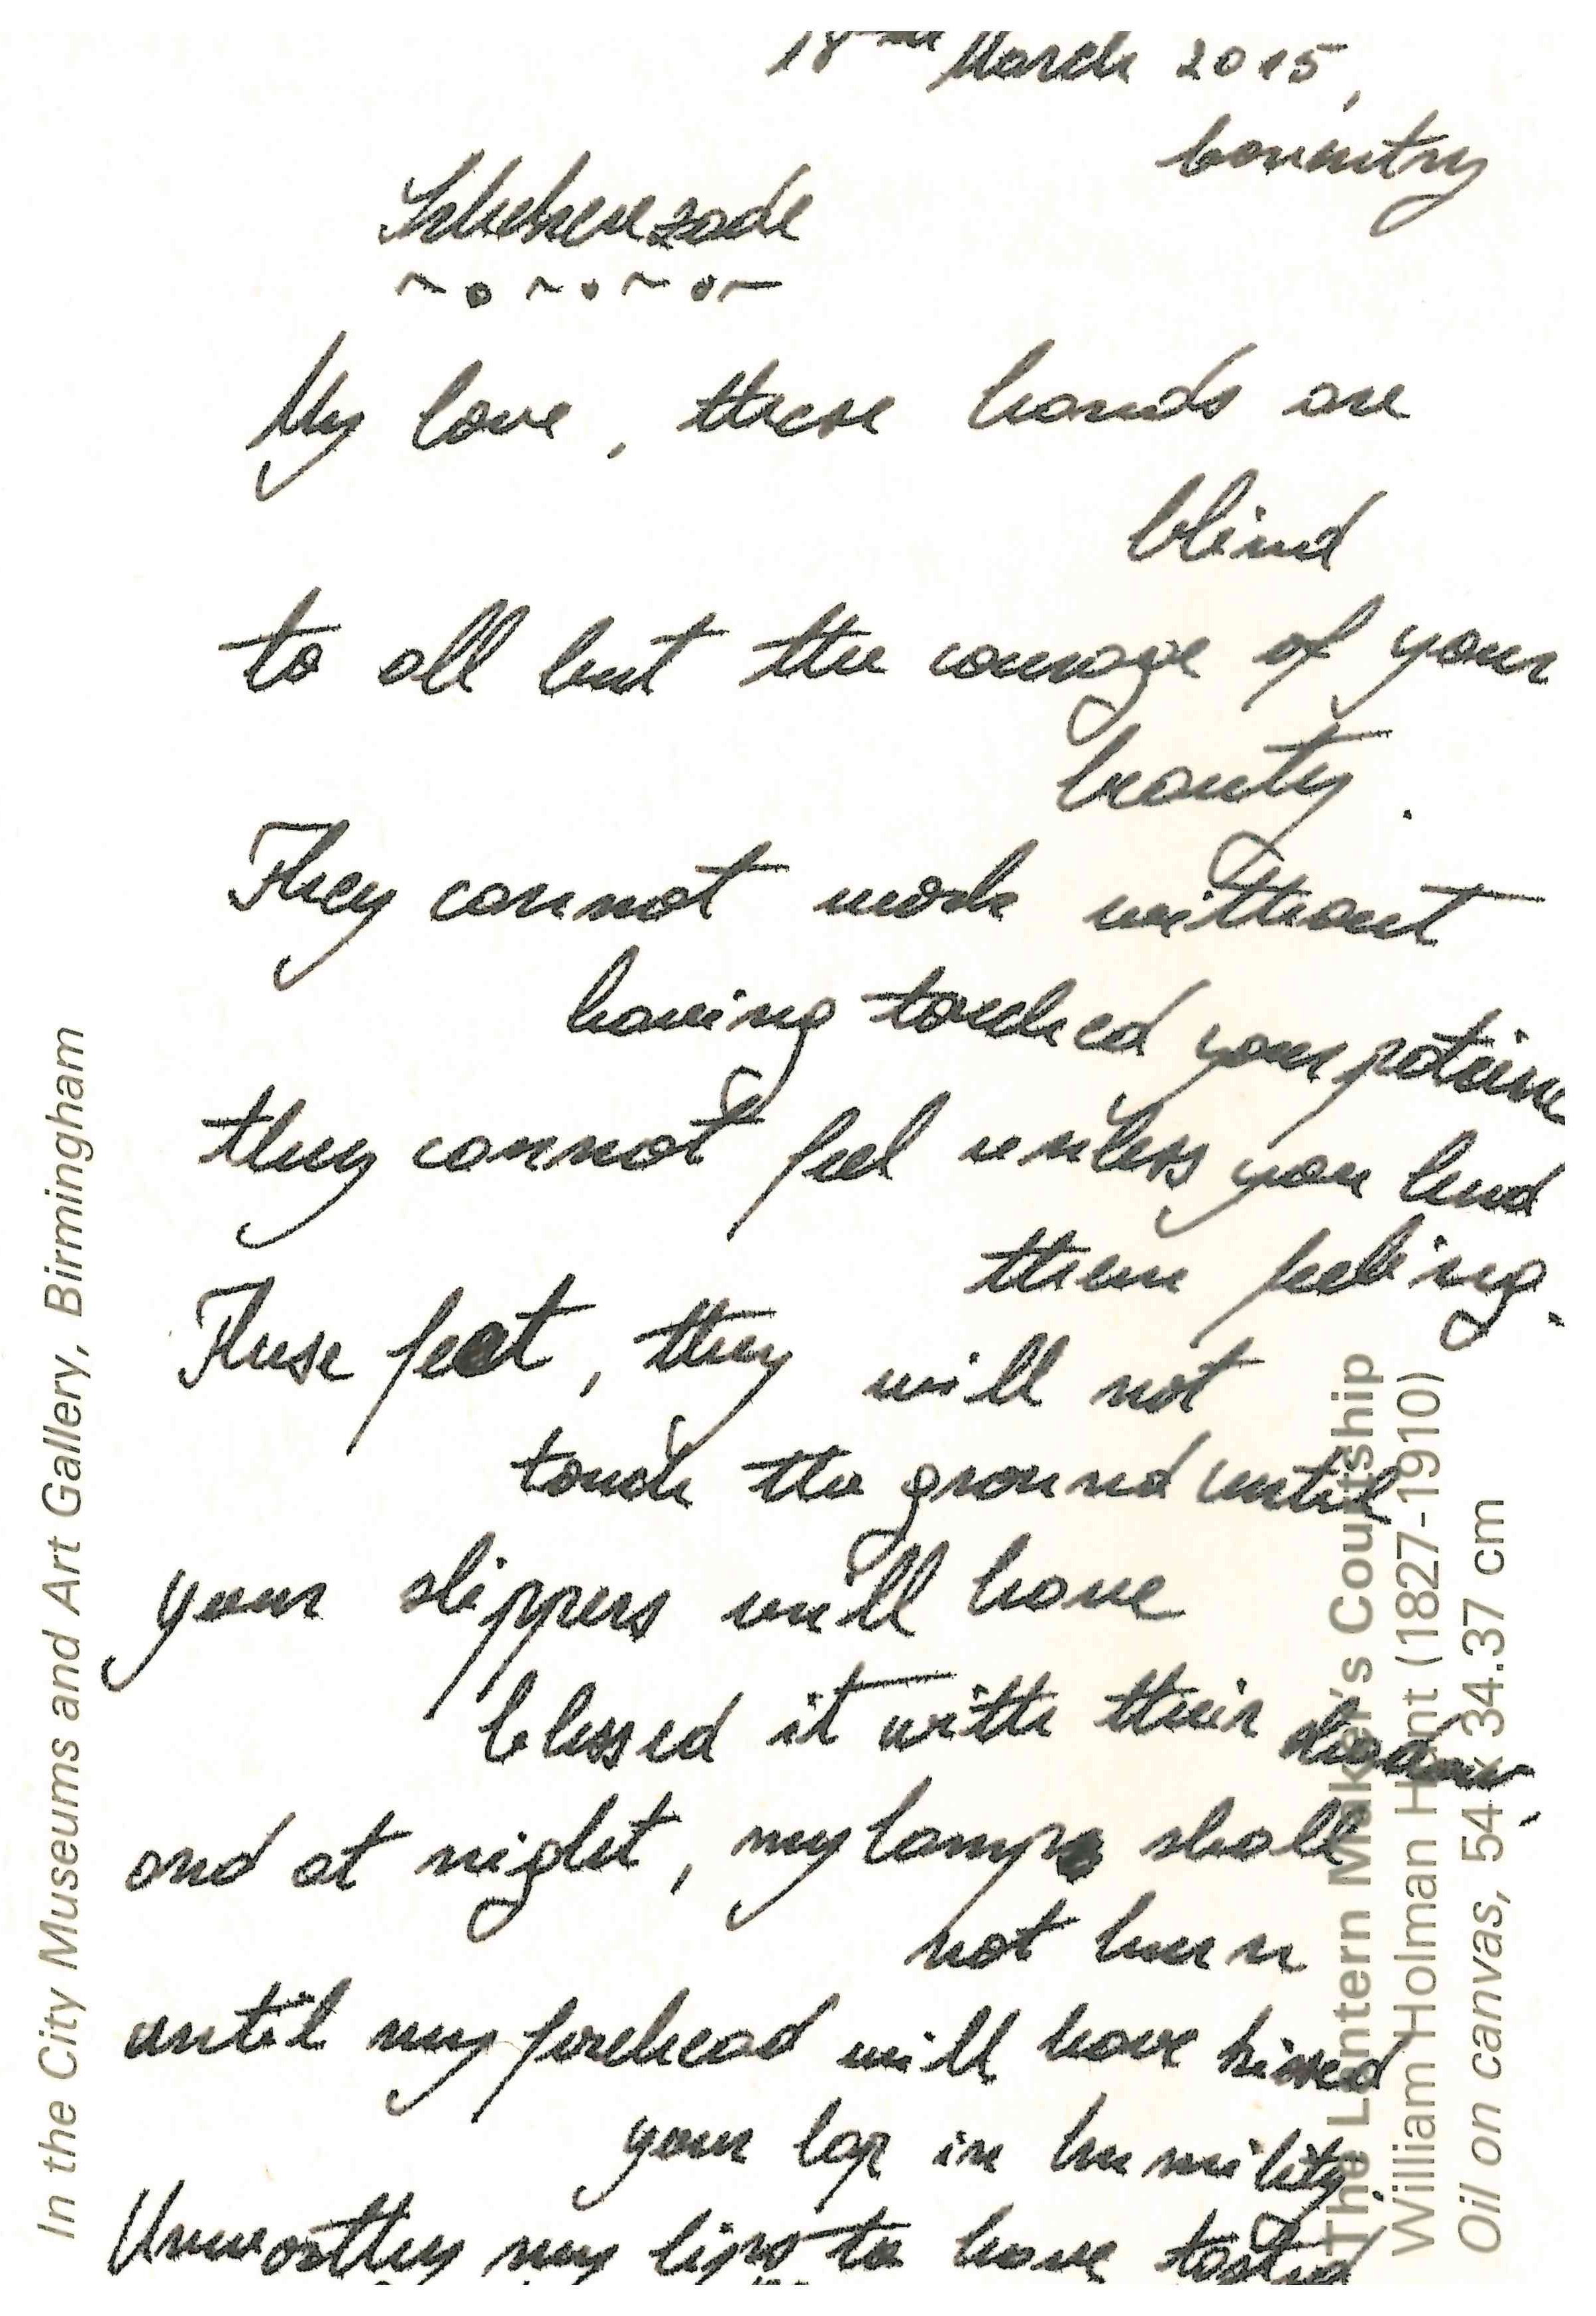 18th March 2015,
Coventry
Scheherezade
My love, these hands are
blind
to all but the courage of your
beauty.
They cannot work without
having touched your
they cannot feel unless you lend
them feeling.
These feet, they will not
touch the ground until
your slippers will have
blessed it with their
and at night, my lamps shall
not burn
until my forehead will have kissed
your lap in humility.
Unworthy my lips to have tasted
In the City Museums and Art Gallery, Birmingham
The Lantern Maker's Courtship
William Holman Hunt (1827-1910)
Oil on canvas, 54 x 34.37 cm